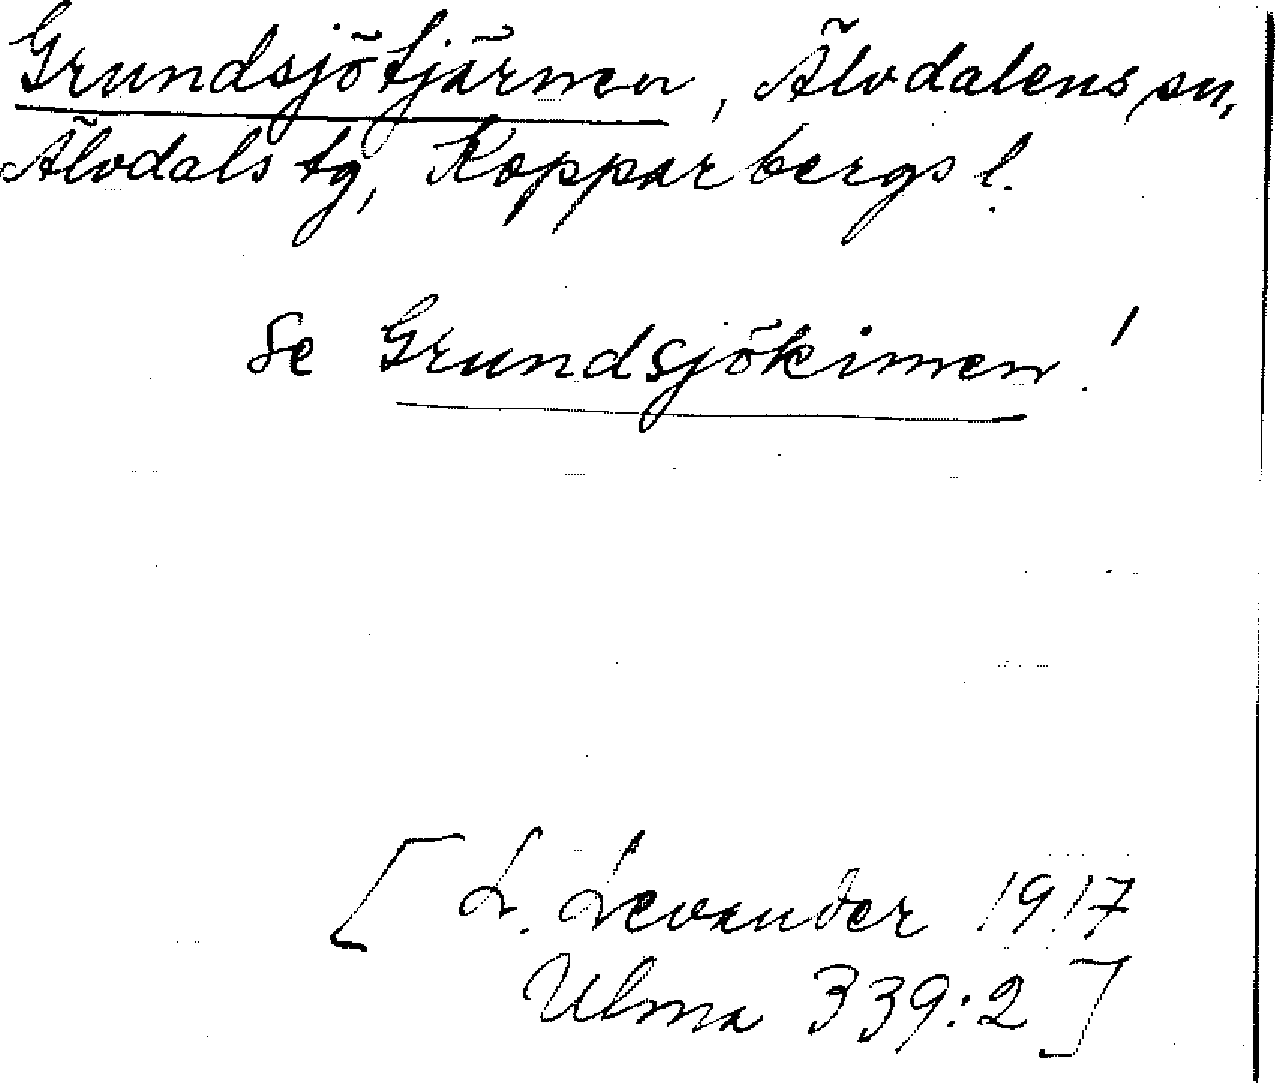 Grundsjötjärnen, Älvdalens sn,
Älvdals tg, Kopparbergs l.
Se Grundsjökinnen!
[L. Levander 1917
Ulma 339:2]